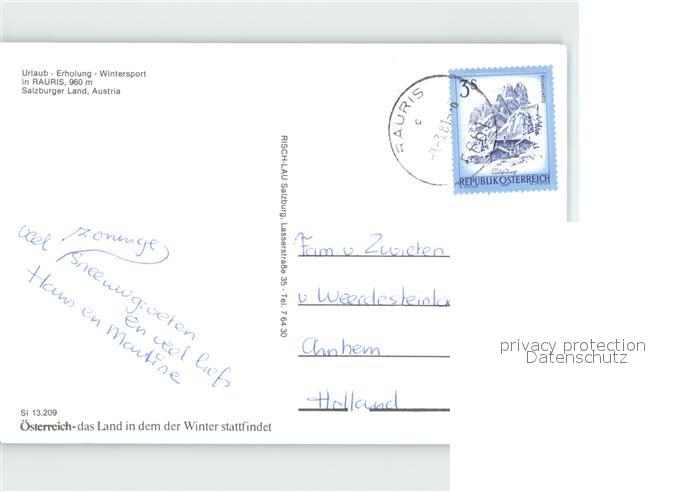 Urlaub - Erholung - Wintersport
in RAURIS, 960 m
Salzburger Land, Austria
RAURIS
c
3S
REPUBLIK ÖSTERREICH
RISCH-LAU Salzburg, Lasserstraße 35 - Tel. 7 64 30
veel zonnige
sneeuwgroeten
en veel liefs
Hans en Martine
Fam v Zwieten
v Weerdesteinla
Arnhem
Holland
privacy protection
Datenschutz
SI 13.209
Österreich - das Land in dem der Winter stattfindet